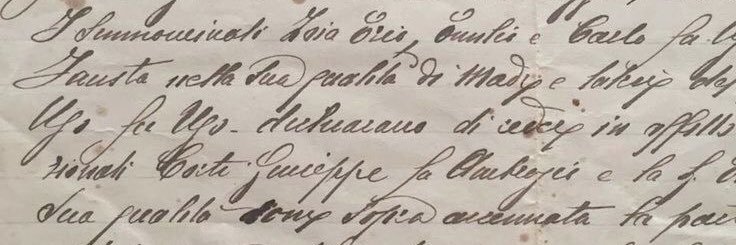 I summominati Isia Ezio, Emilio e Carlo fu U
Fausta nella sua qualità di Madre e tutrice del
Ugo fu Ugo - dichiarano di cedere in affitto
zionati Conti Giuseppe fu e la s.
sua qualità come sopra accennata la parte